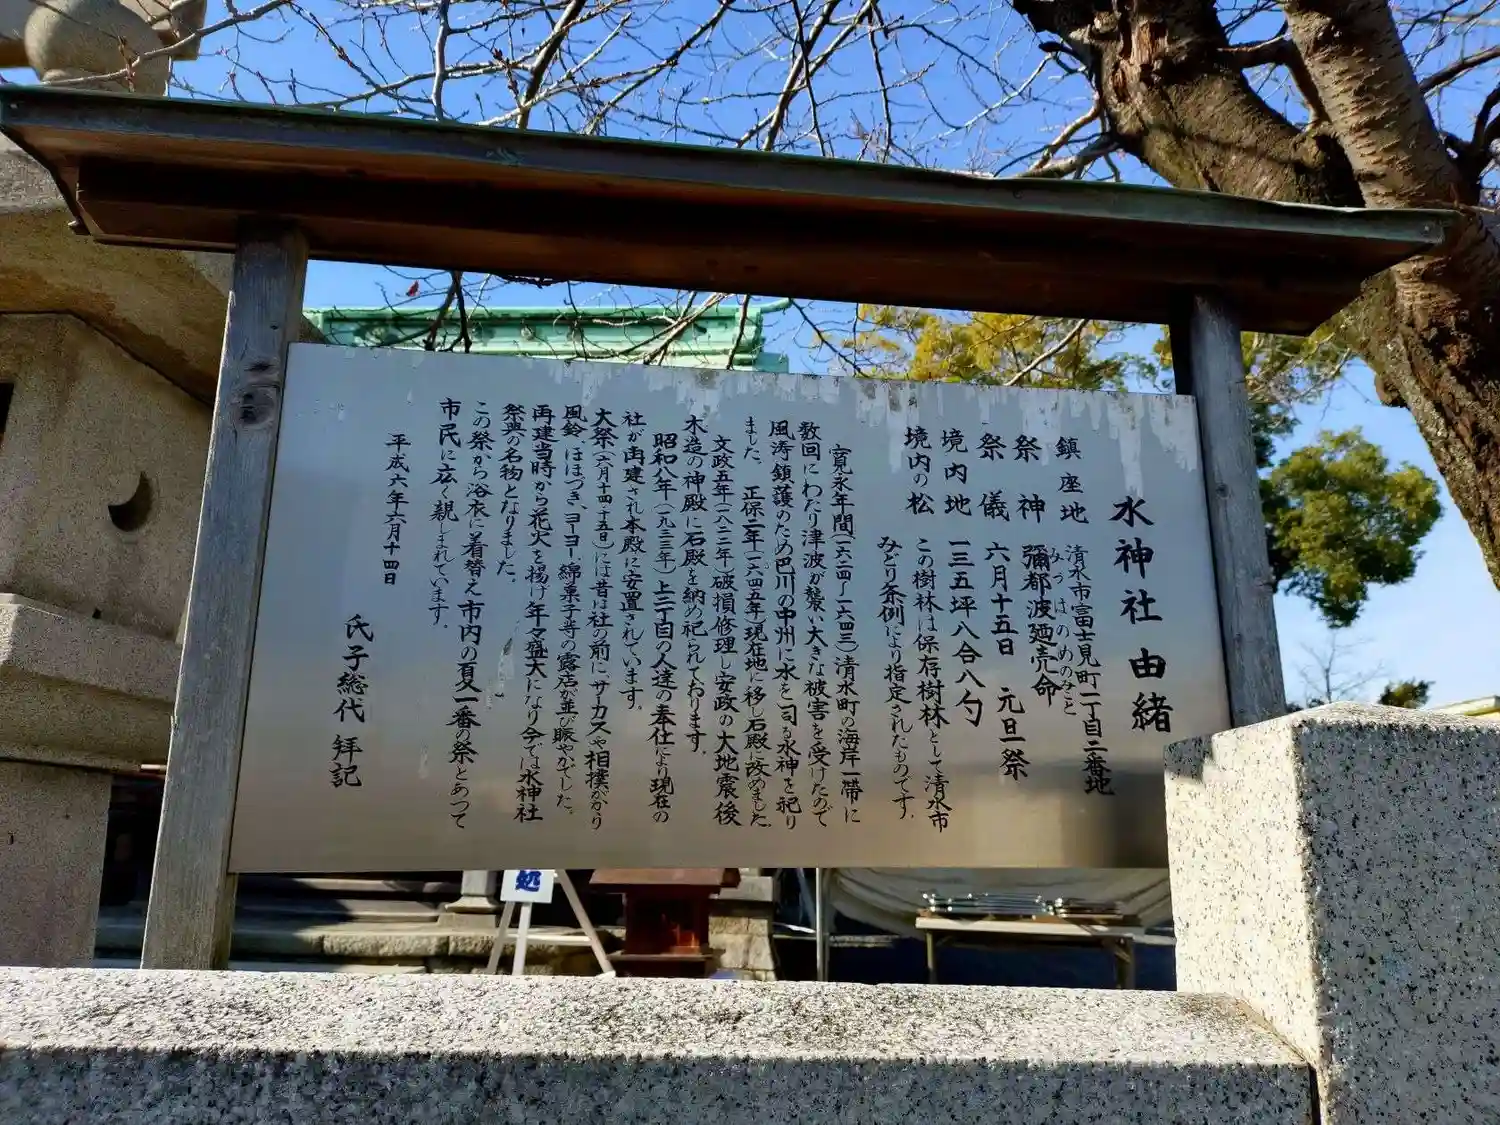 水神社 由緒
鎮座地 清水市富士見町一丁目二番地
みづはのめのみこと
祭神 彌都波廼売命
祭儀 六月十五日 元旦祭
境内地 一三五坪八合八勺
境内の松 この樹林は保存樹林として清水市
みどり条例により指定されたものです。
寛永年間(一六二四〜一六四三)清水町の海岸一帯に
数回にわたり津波が襲い大きな被害を受けたので
風涛鎮護のため巴川の中州に水を司る水神を祀り
ました。 正保二年(一六四五年)現在地に移し石殿に改めました。
文政五年(一八二二年)破損修理し安政の大地震後
木造の神殿に石殿を納め祀られております。
昭和八年(一九三三年)上二丁目の人達の奉仕により現在の
社が再建され本殿に安置されています。
大祭(六月十四・十五日)には昔は社の前にサーカスや相撲がかかり
風鈴、ほほづき、ヨーヨー、綿菓子等の露店が並び賑やかでした。
再建当時から花火を揚げ年々盛大になり今では水神社
祭典の名物となりました。
この祭から浴衣に着替え市内の夏一番の祭とあつて
市民に広く親しまれています。
平成六年六月十四日
氏子総代 拜記
処